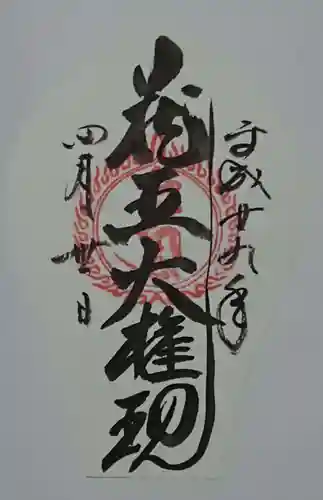 平成廿九年
蔵王大権現
四月卅日